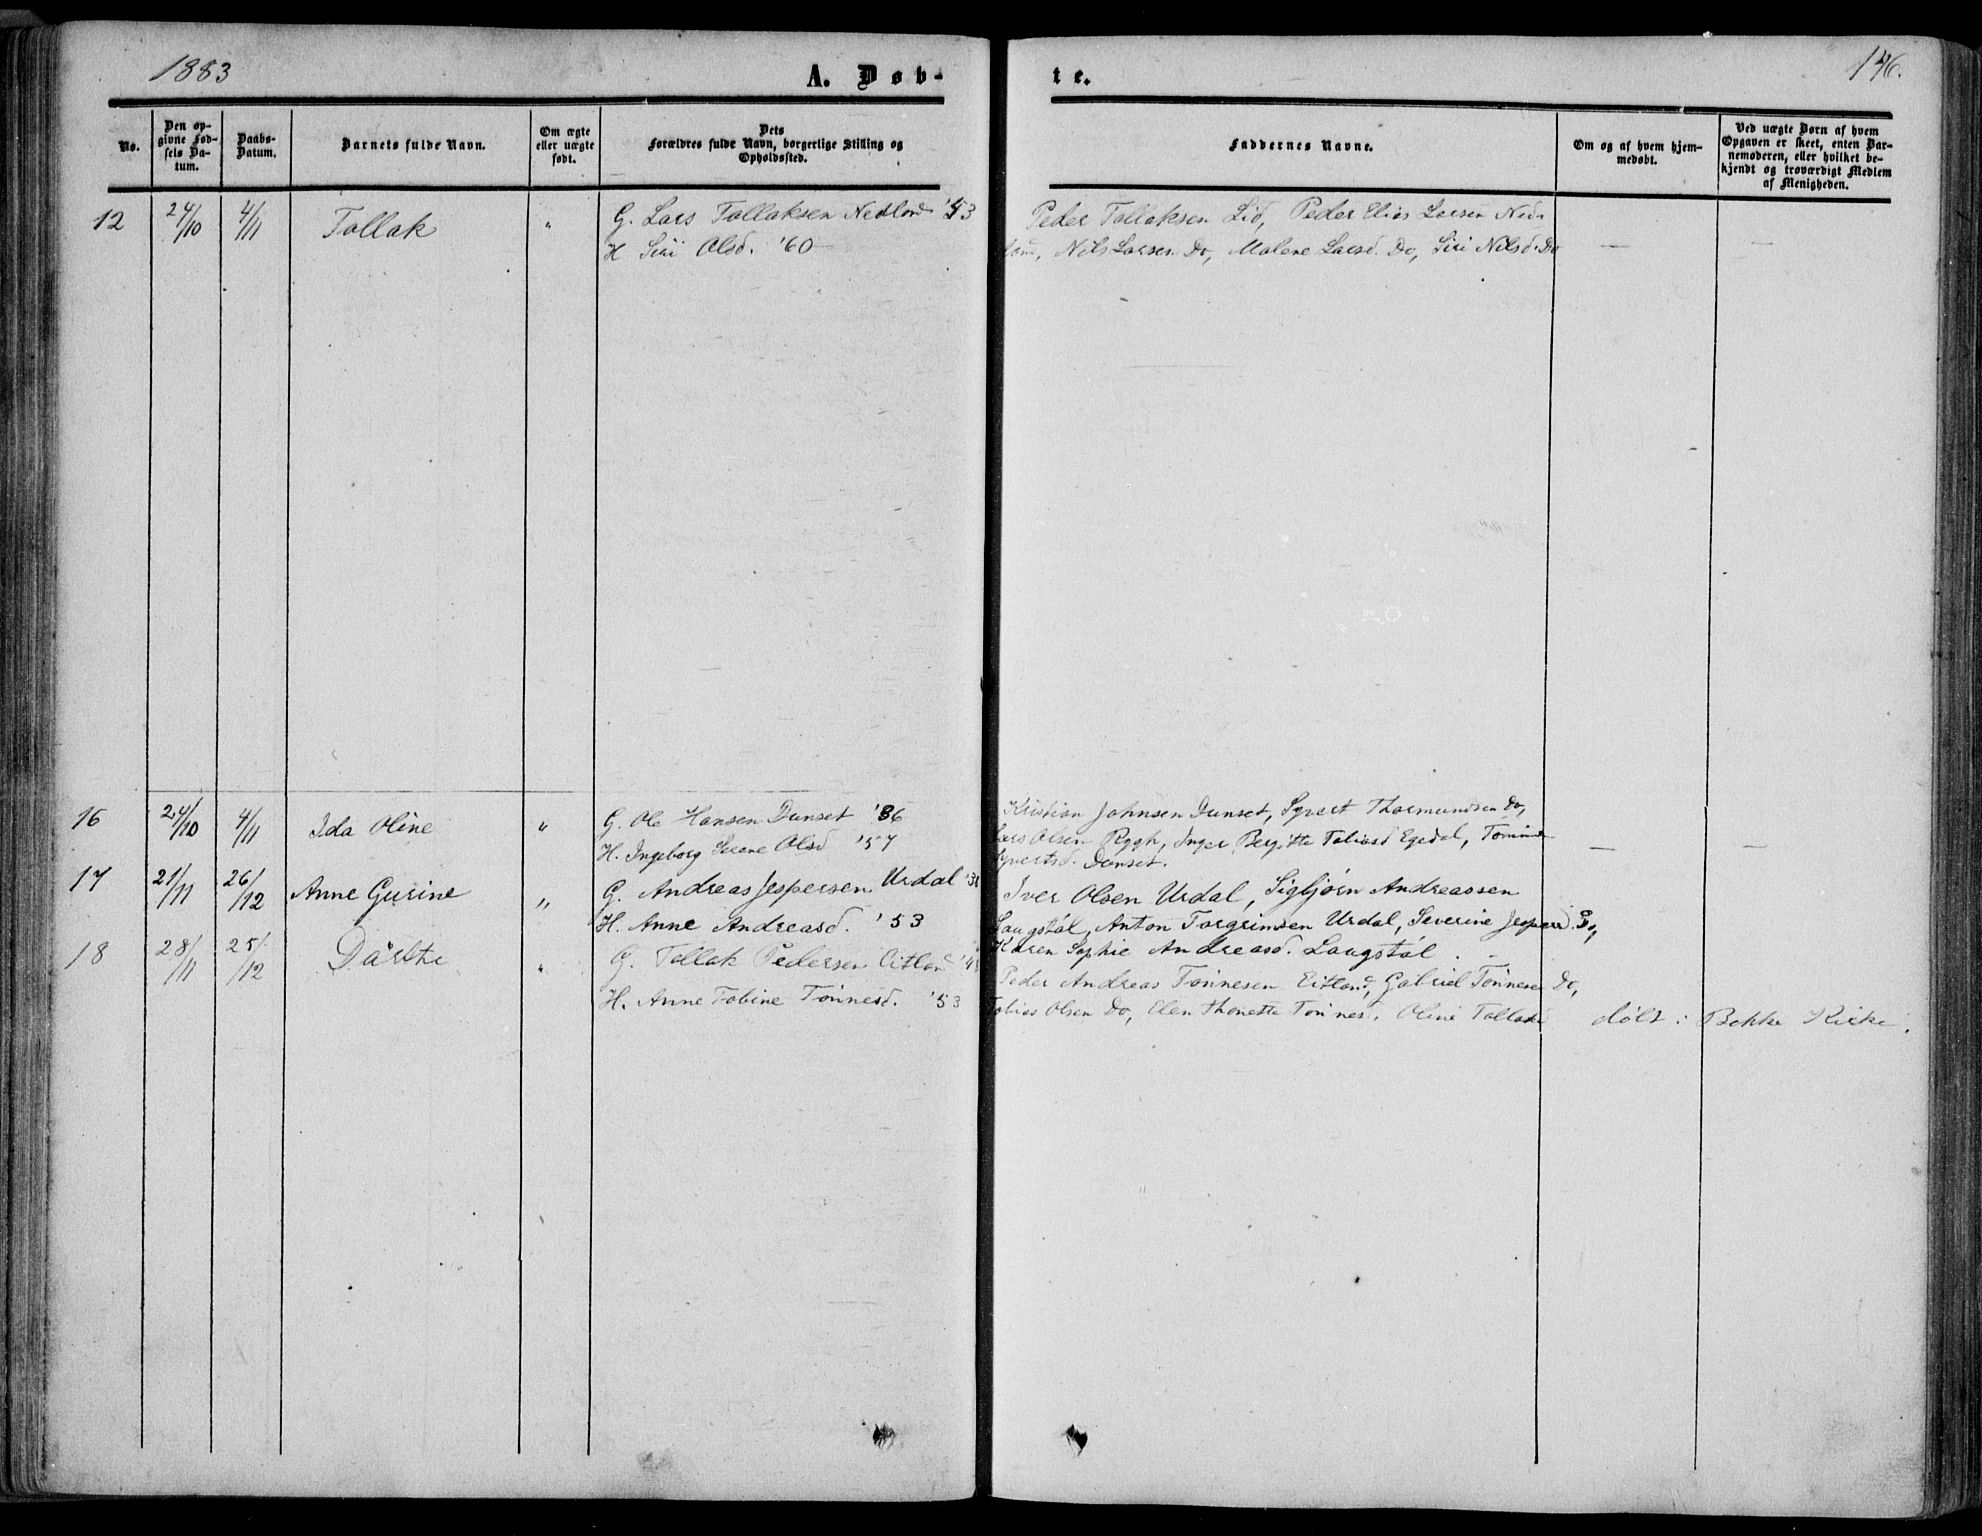 1883
A. Døb-
te.
146.
No.
Den op-
givne Fød-
sels Da-
tum.
Daabs-
Datum.
Barnets fulde Navn.
Om ægte
eller uægte
født.
Dets
Forældres fulde Navn, borgerlige Stilling og
Opholdssted.
Faddernes Navne.
Om og af hvem hjem-
medøbt.
Ved uægte Børn af hvem
Opgaven er skeet, enten Bar-
nemoderen, eller hvilket be-
kjendt og troværdigt Medlem
af Menigheden.
12 24/10 4/11 Tallak " G. Lars Tallaksen Nedland '53
H Siri Olsd. '60
Peder Tallaksen Lid, Peder Elias Larsen Ned-
land, Nils Larsen Do, Malene Larsd. Do, Siri Nilsd. Do — —
16 24/10 4/11 Ida Oline " G. Ole Hansen Dunset '36
H. Ingeborg Serene Olsd '57
Kristian Johnsen Dunset, Syvert Thormundsen Do,
Lars Olsen Rygh, Inger Bergitte Tobiasd Egedal,
Syvertsd. Dunset. — —
17 21/11 26/12 Anne Gurine " G. Andreas Jespersen Urdal
H. Anne Andreasd. '53
Iver Olsen Urdal, Sigbjørn Andreassen
Laugstøl, Anton Torgrimsen Urdal, Severine Jespersd. Do,
Karen Sophie Andreasd. Laugstøl.
18 28/11 25/12 Dårthe " G. Tallak Pedersen Eitland
H. Anne Tobine Tønnesd. '53
Peder Andreas Tønnesen Eitland, Gabriel Tønnesen Do,
Tobias Olsen Do, Elen Thonette Tønnes. Oline Tallaks døbt i Bekke Kirke.